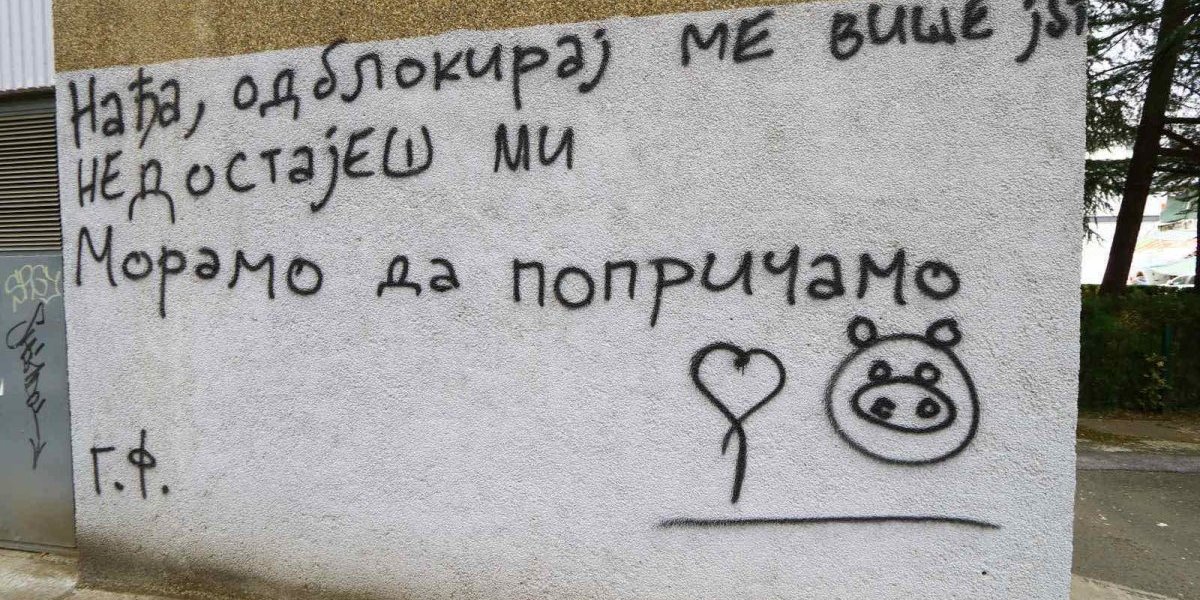 Нађа, одблокирај ме више
недостајеш ми
Морамо да попричамо
Г.Ф.